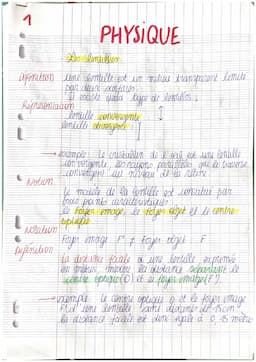 1
PHYSIQUE
Les lentilles
Définition Une lentille est un milieu transparent limité
par deux surfaces.
Il existe deux type de lentilles.
Représentation
lentille convergente
lentille divergente
→ exemple : Le cristallin de l'œil est une lentille
convergente, les rayons parallèles qui le traverse
convergent au niveau de la rétine
Notion
Le modèle de la lentille est constitué par
trois points caractéristiques :
le foyer image, le foyer objet et le centre
optique
Notation Foyer image F' ≠ foyer objet F
Définition
la distance focale d'une lentille exprimé
en mètres, mesure la distance séparant le
centre optique (O) et le foyer image (F')
→ exemple : Le centre optique O et le foyer image
F' d'une lentille sont distant de 15 cm
la distance focale est donc égale à 0,15 mètre